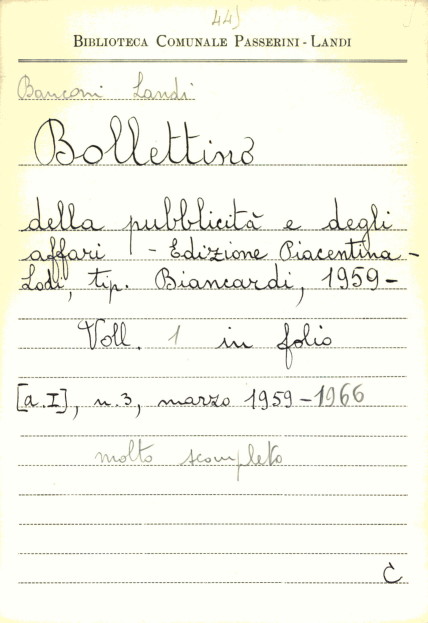 44)
BIBLIOTECA COMUNALE PASSERINI-LANDI
Banconi Landi
Bollettino
della pubblicità e degli
affari - Edizione Piacentina -
Lodi, tip. Biancardi, 1959-
Voll. 1 in folio
[a.I], n.3, marzo 1959-1966
molto scompleto
C